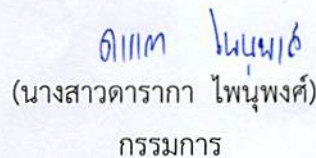 (นางสาวดารากา ไพนุ่พงศ์)
กรรมการ